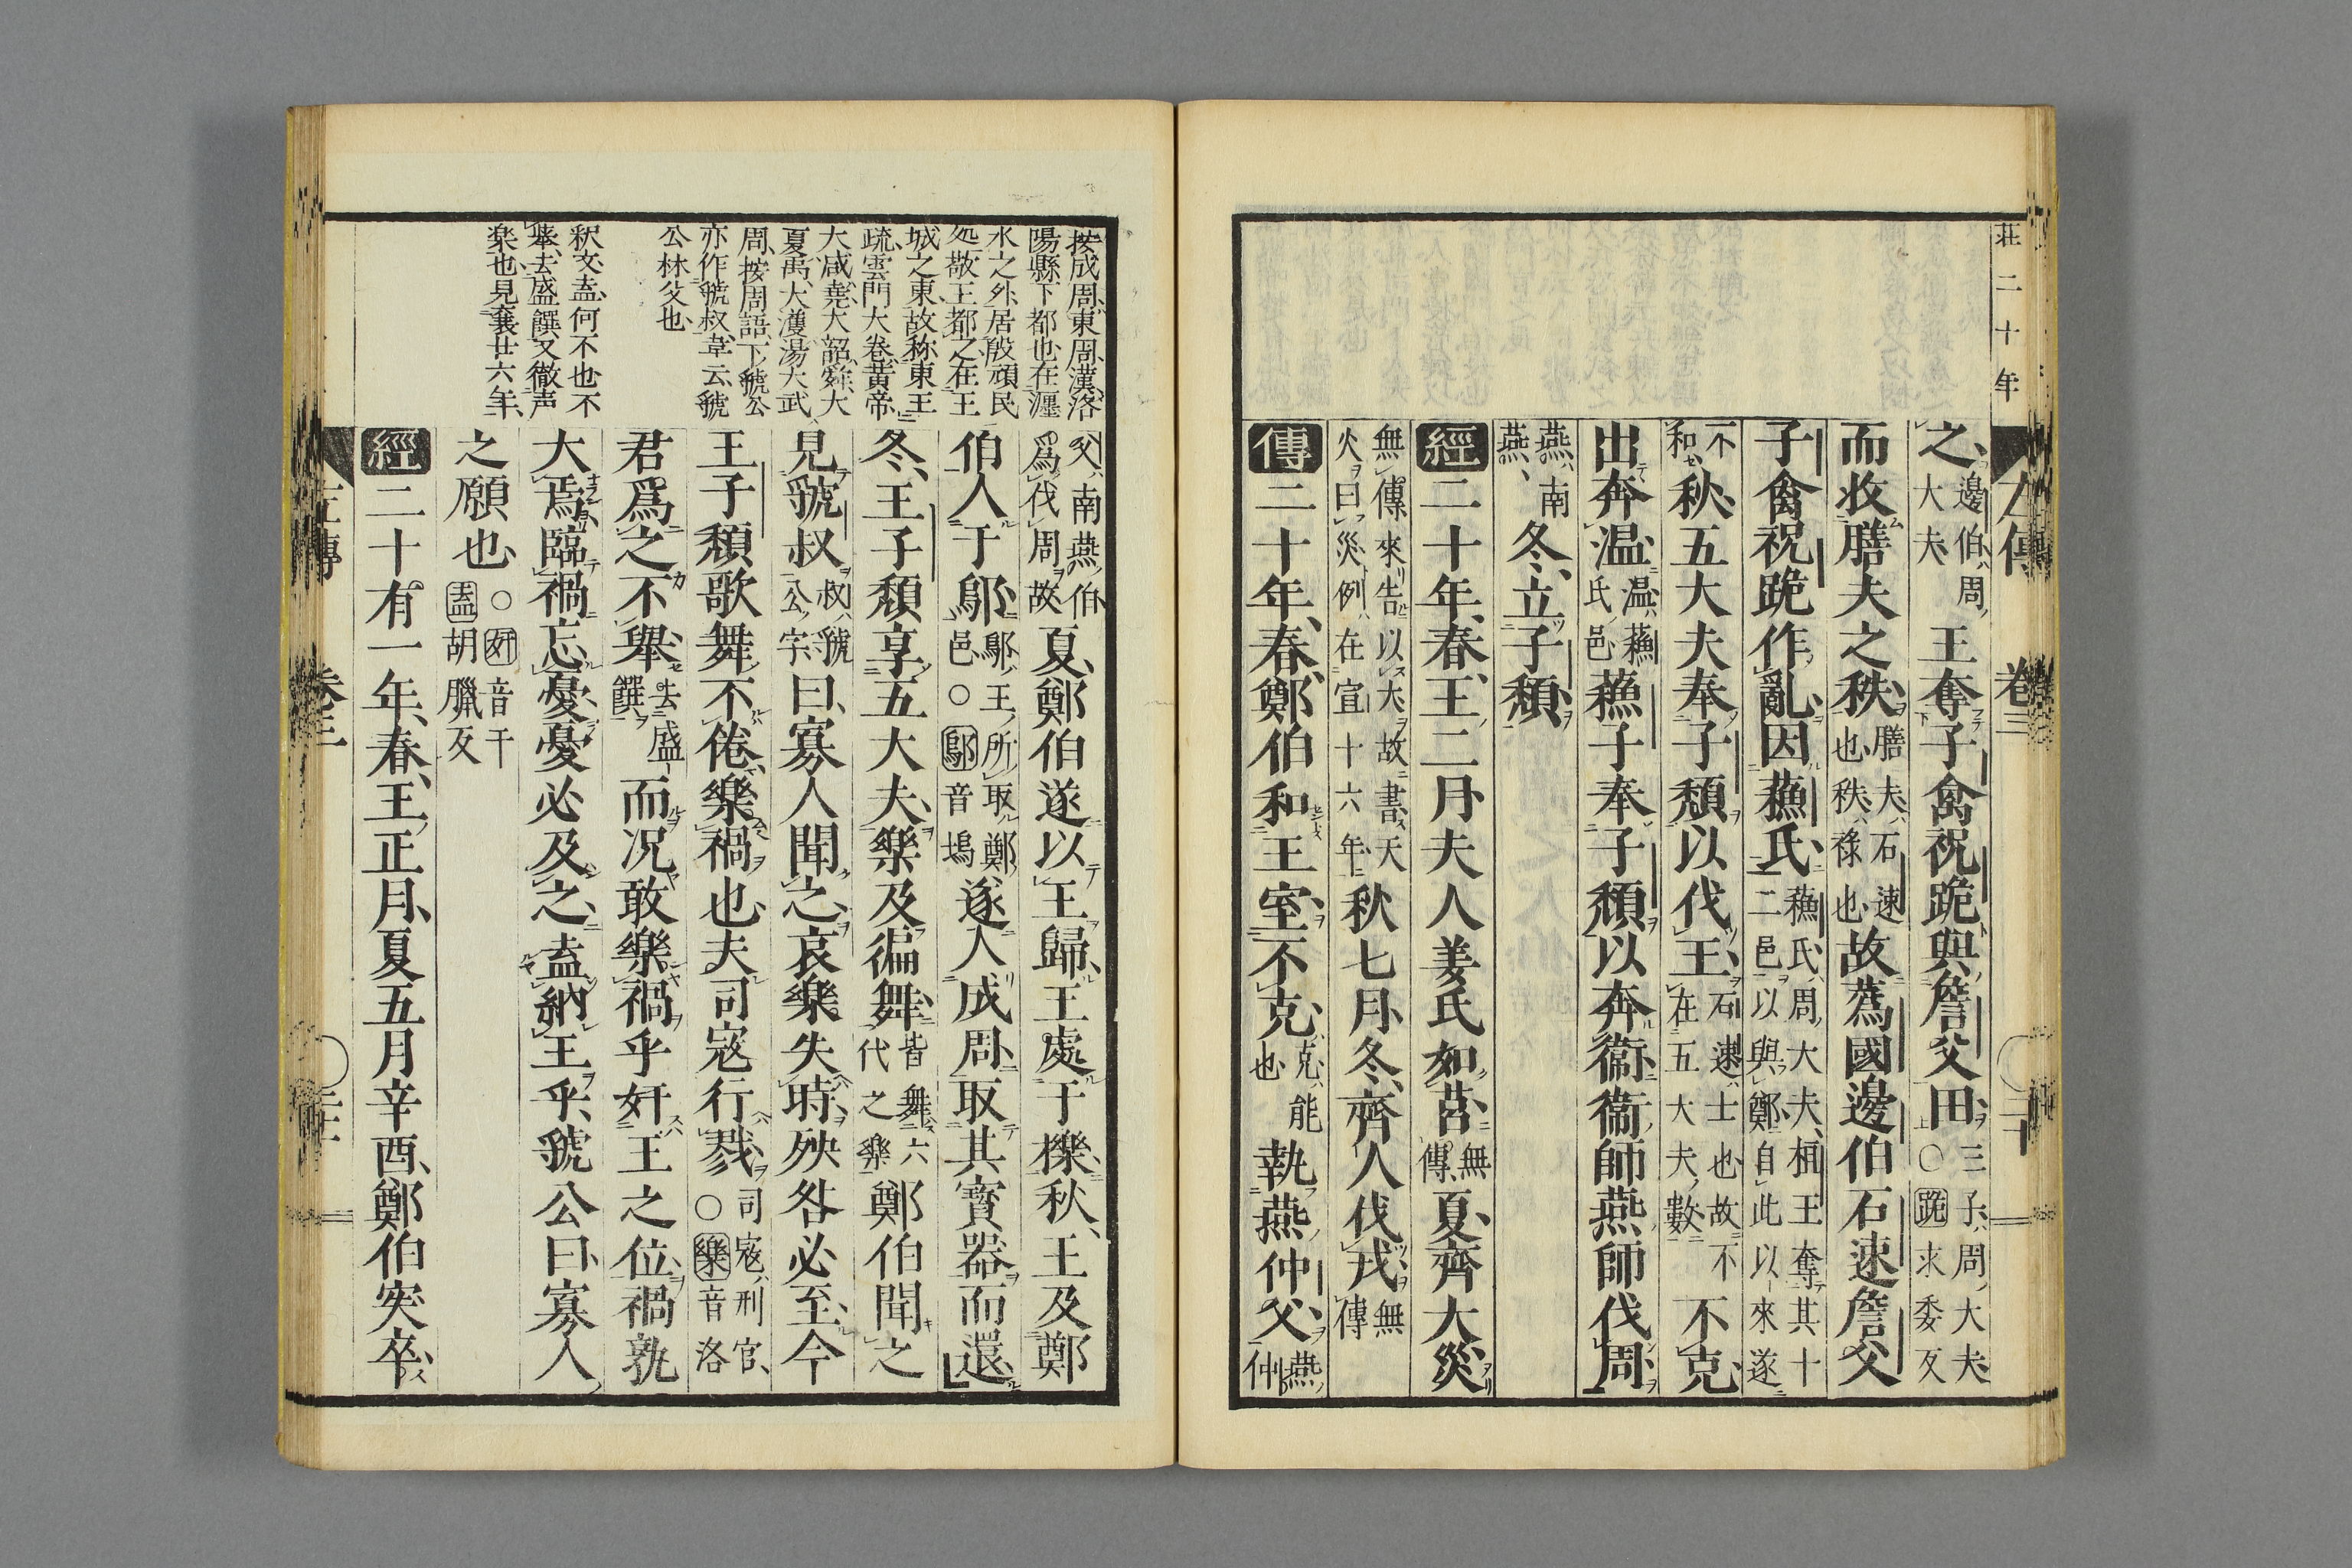 莊二十年
左傳
卷三
之邊伯周大夫王奪子禽祝跪與詹父田三子周大夫○跪求委反
而收膳夫之秩膳夫石速也秩祿也故蔿國邊伯石速詹父
子禽祝跪作亂因蘓氏蘓氏周大夫桓王奪其十二邑以與鄭自此以來遂
不和秋五大夫奉子頹以伐王石速士也故不在五大夫數不克
出奔温温蘓氏邑蘓子奉子頹以奔衞衞師燕師伐周
燕南燕冬立子頹
經二十年春王二月夫人姜氏如莒無傳夏齊大災
無傳來告以大故書天火曰災例在宣十六年秋七月冬齊人伐戎無傳
傳二十年春鄭伯和王室不克克能也執燕仲父燕仲
按成周東周漢洛
陽縣下都也在瀍
水之外居殷頑民
処敬王都之在王
城之東故称東王
疏雲門大卷黄帝
大咸堯大韶舜大
夏禹大濩湯大武
周按周語下虢公
亦作虢叔韋云虢
公林父也
釈文盍何不也不
舉去盛饌又徹声
楽也見襄廿六年
父南燕伯爲伐周故夏鄭伯遂以王歸王處于櫟秋王及鄭
伯入于鄔鄔王所取鄭邑○鄔音塢遂入成周取其寳器而還
冬王子頹享五大夫樂及徧舞皆舞六代之樂鄭伯聞之
見虢叔叔虢公字曰寡人聞之哀樂失時殃咎必至今
王子頹歌舞不倦樂禍也夫司寇行戮司寇刑官○樂音洛
君爲之不舉去盛饌而况敢樂禍乎奸王之位禍孰
大焉臨禍忘憂憂必及之盍納王乎虢公曰寡人
之願也○奸音干盍胡臘反
經二十有一年春王正月夏五月辛酉鄭伯突卒
左傳
卷三